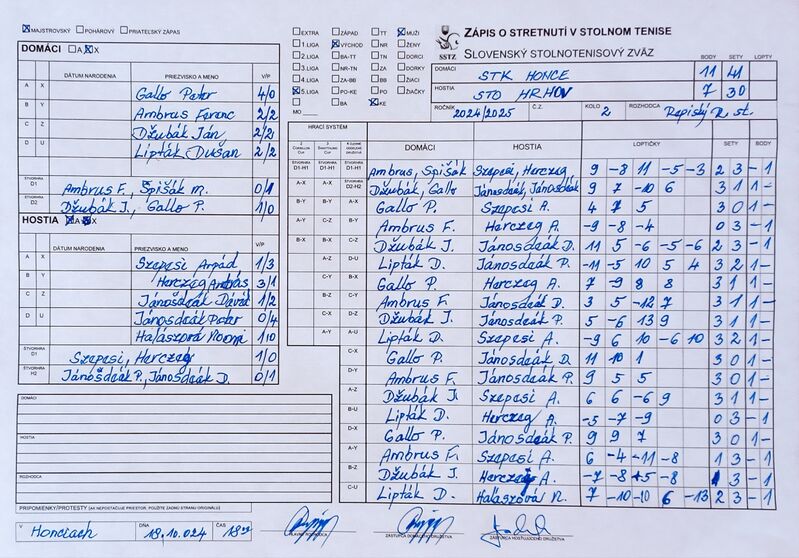 MAJSTROVSKÝ POHÁROVÝ PRIATEĽSKÝ ZÁPAS
EXTRA ZÁPAD TT MUŽI
1.LIGA VÝCHOD NR ŽENY
2.LIGA BA-TT TN DORCI
3.LIGA NR-TN ZA DORKY
4.LIGA ZA-BB BB ŽIACI
5.LIGA PO-KE PO ŽIAČKY
BA KE
MO
SSTZ
ZÁPIS O STRETNUTÍ V STOLNOM TENISE
SLOVENSKÝ STOLNOTENISOVÝ ZVÄZ
BODY SETY LOPTY
DOMÁCI STK HONCE 11 41
HOSTIA STO HRHOV 7 30
ROČNÍK 2024/2025 Č.Z. KOLO 2 ROZHODCA Repiský R. st.
DOMÁCI A X
DÁTUM NARODENIA PRIEZVISKO A MENO V/P
A X Gallo Peter 4/0
B Y Ambrus Ferenc 2/2
C Z Džubák Ján 2/2
D U Lipták Dušan 2/2
ŠTVORHRA D1 Ambrus F., Spišák M. 0/1
ŠTVORHRA D2 Džubák J., Gallo P. 1/0
HOSTIA A X
DÁTUM NARODENIA PRIEZVISKO A MENO V/P
A X Szepesi Arpád 1/3
B Y Herczeg András 3/1
C Z Jánosdeák Dávid 1/2
D U Jánosdeák Peter 0/4
Halászová 1/0
ŠTVORHRA D1 Szepesi, Herczeg 1/0
ŠTVORHRA H2 Jánošdeák P., Jánošdeák D. 0/1
HRACÍ SYSTÉM
DOMÁCI HOSTIA LOPTIČKY SETY BODY
D1-H1 D1-H1 D1-H1 Ambrus, Spišák Szepesi, Herczeg 9 -8 11 -5 -3 2 3 - 1
A-X A-X D2-H2 Džubák, Gallo Jánosdeák, Jánosdeák 9 7 -10 6 3 1 1 -
B-Y B-Y A-X Gallo P. Szepesi A. 4 7 5 3 0 1 -
A-Y C-Z B-Y Ambrus F. Herczeg A. -9 -8 -4 0 3 - 1
B-X B-X C-Z Džubák J. Jánosdeák D. 11 5 -6 -5 -6 2 3 - 1
A-Z D-U Lipták D. Jánosdeák P. -11 -5 10 5 4 3 2 1 -
C-Y B-X Gallo P. Herczeg A. 7 -9 8 8 3 1 1 -
B-Z C-Y Ambrus F. Jánosdeák D. 3 5 -12 7 3 1 1 -
C-X D-Z Džubák J. Jánosdeák P. 5 -6 13 9 3 1 1 -
A-Y A-U Lipták D. Szepesi A. -9 6 10 -6 10 3 2 1 -
C-X Gallo P. Jánosdeák D. 11 10 1 3 0 1 -
D-Y Ambrus F. Jánosdeák P. 9 5 5 3 0 1 -
A-Z Džubák J. Szepesi A. 6 6 -6 9 3 1 1 -
B-U Lipták D. Herczeg A. -5 -7 -9 0 3 - 1
D-X Gallo P. Jánosdeák P. 9 9 7 3 0 1 -
A-Y Ambrus F. Szepesi A. 6 -4 -11 -8 1 3 - 1
B-Z Džubák J. Herczeg A. -7 -8 -8 3 - 1
C-U Lipták D. Halászová 7 -10 -10 6 -13 2 3 - 1
DOMÁCI
HOSTIA
ROZHODCA
PRIPOMIENKY/PROTESTY (AK NEPOSTAČUJE PRIESTOR, POUŽITE ZADNÚ STRANU ORIGINÁLU)
V Honciach DŇA 18.10.024 ČAS 18
HLAVNÝ ROZHODCA ZÁSTUPCA DOMÁCEHO DRUŽSTVA ZÁSTUPCA HOSŤUJÚCEHO DRUŽSTVA